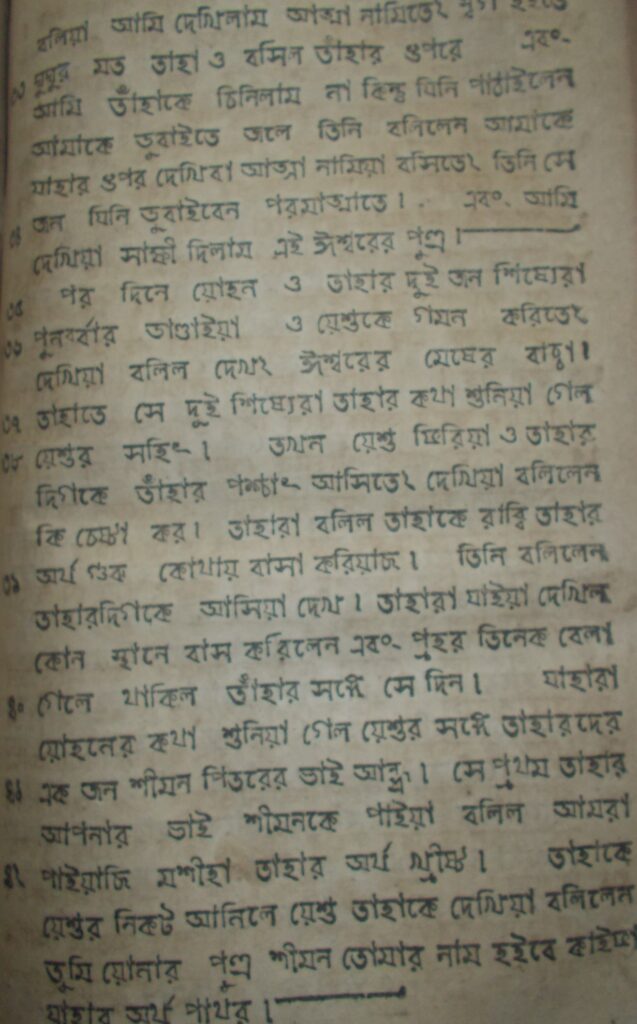 বলিয়া আমি দেখিলাম আত্মা নামিতে২ স্বর্গ হইতে
৩৩ ঘুঘুর মত তাহা ও বসিল তাঁহার ওপরে এবং
আমি তাঁহাকে চিনিলাম না কিন্তু যিনি পাঠাইলেন
আমাকে ডুবাইতে জলে তিনি বলিলেন আমাকে
যাহার ওপর দেখিবা আত্মা নামিয়া বসিতে২ তিনি সে
৩৪ জন যিনি ডুবাইবেন পরমাত্মাতে। এবং আমি
দেখিয়া সাক্ষী দিলাম এই ঈশ্বরের পুত্র।
৩৫ পর দিনে য়োহন ও তাহার দুই জন শিষ্যেরা
৩৬ পুনর্ব্বার ডাণ্ডাইয়া ও য়েশুকে গমন করিতে২
দেখিয়া বলিল দেখ২ ঈশ্বরের মেষের বাচ্চা।
৩৭ তাহাতে সে দুই শিষ্যেরা তাহার কথা শুনিয়া গেল
৩৮ য়েশুর সহিৎ। তখন য়েশু ফিরিয়া ও তাহার
দিগকে তাঁহার পশ্চাৎ আসিতে২ দেখিয়া বলিলেন
কি চেষ্টা কর। তাহারা বলিল তাহাকে রাব্বি তাহার
৩৯ অর্থ গুরু কোথায় বাসা করিয়াজ। তিনি বলিলেন
তাহারদিগকে আসিয়া দেখ। তাহারা যাইয়া দেখিল
কোন স্থানে বাস করিলেন এবং প্রহর তিনেক বেলা
৪০ গেলে থাকিল তাঁহার সঙ্গে সে দিন। যাহারা
য়োহনের কথা শুনিয়া গেল য়েশুর সঙ্গে তাহারদের
৪১ এক জন শীমন পিতরের ভাই আন্দ্রু। সে প্রথম তাহার
আপনার ভাই শীমনকে পাইয়া বলিল আমরা
৪২ পাইয়াজি মশীহা তাহার অর্থ খ্রীষ্ট। তাহাকে
য়েশুর নিকট আনিলে য়েশু তাহাকে দেখিয়া বলিলেন
তুমি য়োনার পুত্র শীমন তোমার নাম হইবে কাইফা
যাহার অর্থ পাথর।